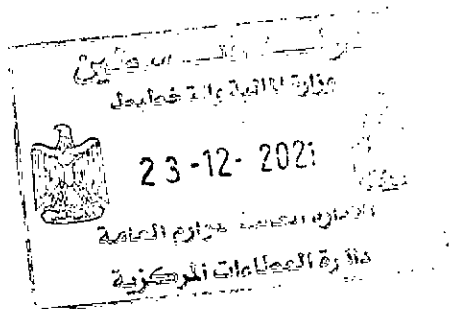 فلسطين
وزارة المالية والتخطيط
23-12-2021
الادارة العامة للوازم العامة
دائرة العطاءات المركزية